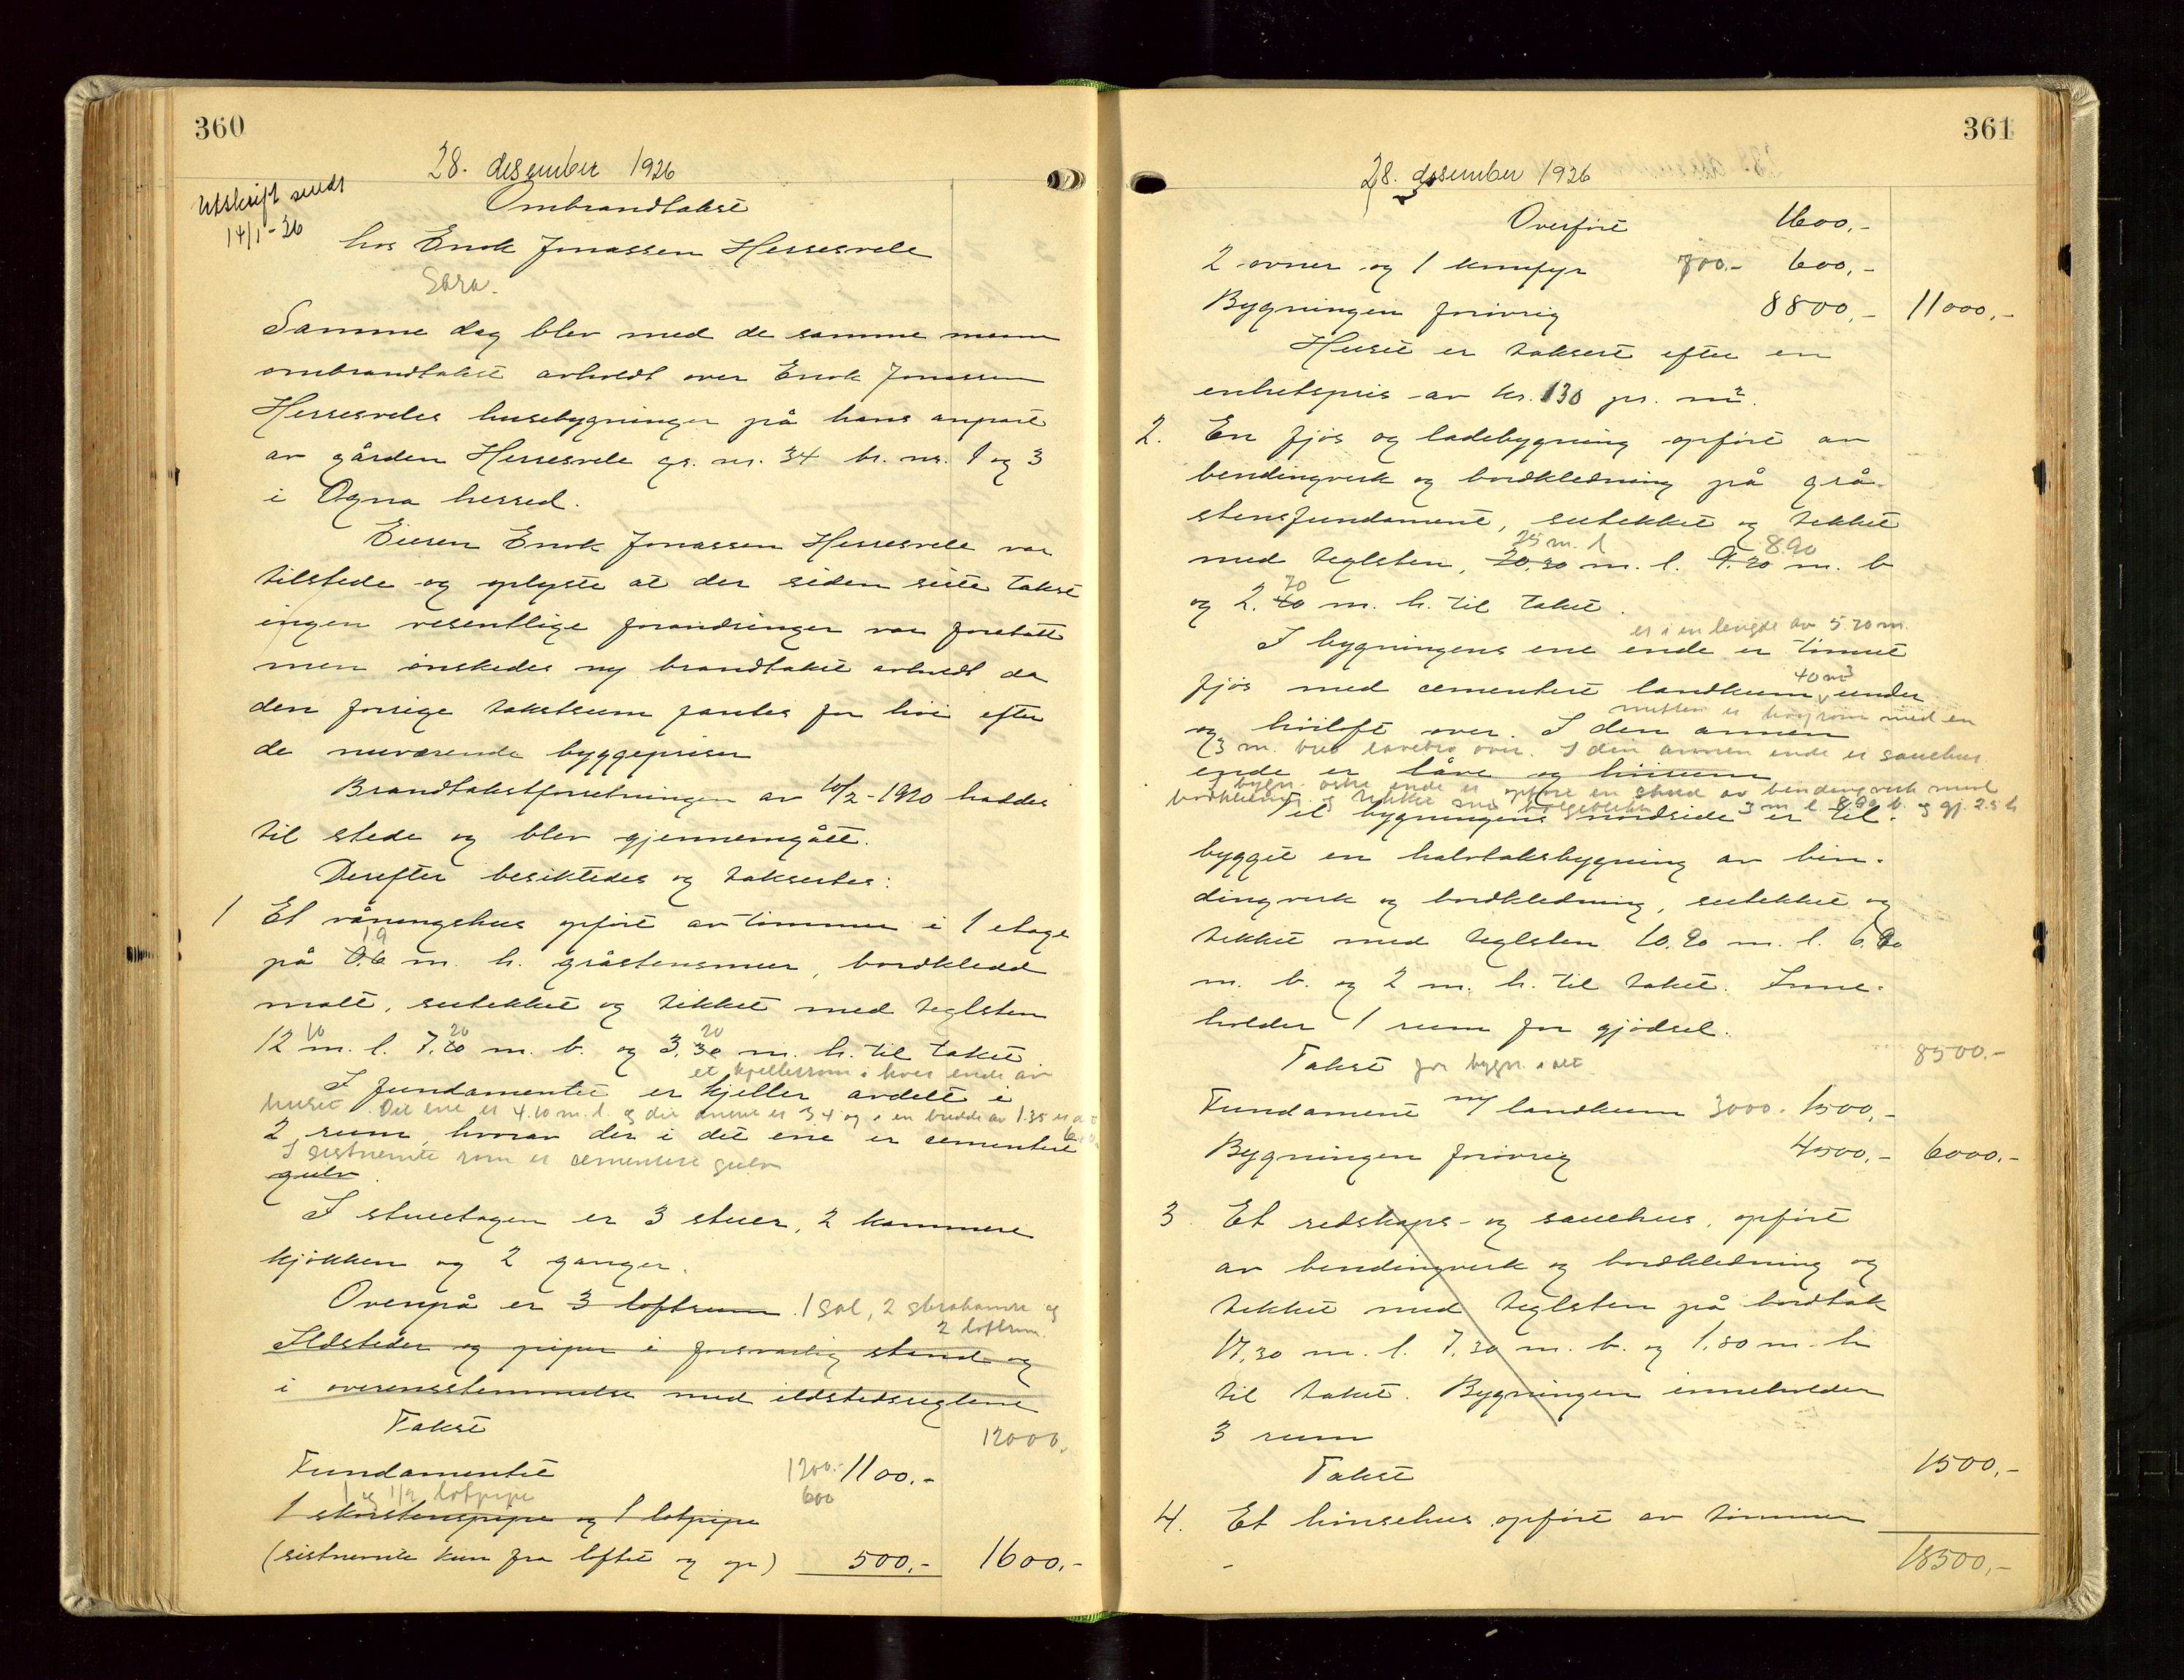 360
28. desember 1926
Utskrift sendt
14/1-26
Ombrandtakst
hos Enok Jonassen Herresvele
Samme dag blev med de samme menn
ombrandtakst avholdt over Enok Jonassen
Herresveles husebygninger på hans anpart
av gården Herresvele gr. nr. 34 br. nr. 1 og 3
i Ogna herred.
Eieren Enok Jonassen Herresvele var
tilstede og oplyste at der siden siste takst
ingen vesentlige forandringer var foretatt
men ønskedes ny brandtakst avholdt da
den forrige takstsum fantes for høi efter
de nuværende byggepriser
Brandtakstforretningen av 10/2-1920 haddes
til stede og blev gjennemgått.
Derefter besiktedes og taksertes:
1 Et våningshus opført av timmer i 1 etage
1.9
på 0.6 m. h. gråstensmur, bordkledd
malt, sutekket og tekket med teglsten
10 20 20
12 m. l. 7.20 m. b. og 3.30 m. h. til taket.
et kjellerrom i hver ende av
I fundamentet er kjeller avdelt i
huset. Det ene er 4.10 m. l. og det annet er 3.4 og i en bredde av 1.35 er
2 rum, hvorav der i det ene er cementert
I sistnemte rom er cementert gulv
gulv.
I stueetagen er 3 stuer, 2 kammere
kjøkken og 2 ganger.
Ovenpå er 3 loftsrum. 1 sal, 2 og
2 loftrum.
Ildsteder og piper i forsvarlig stand og
i overensstemmelse med ildstedsreglene
Takst 12000.
Fundamentet 1200.- 1100.-
1 og 1/2 løtpipe 600
1 skorstenspipe og 1 løtpipe
(sistnemte kun fra loftet og op) 500,- 1600,-
361
28. desember 1926
Overført 1600,-
2 ovner og 1 komfyr 700.- 600,-
Bygningen forøvrig 8800,- 11000,-
Huset er taksert efter en
enhetspris av kr. 130 pr. m².
2. En fjøs og ladebygning opført av
bendingverk og bordkledning på grå-
stensfundament, sutekket og tekket
25 m. l 8.90
med teglsten, 20.30 m. l. 9.20 m. b
70
og 2.40 m. h. til taket.
er i en lengde av 5.70 m.
I bygningens ene ende er timret
40 m³
fjøs med cementert landkum under
midten er høyrom med en
og høiloft over. I den annen
3 m. bred låvebro over. I den annen ende er sauehus
ende er låve og høirum
I bygn. østre ende er opført en skred av bendingverk med
bordkledning og tekket med bølgeblekk 3 m l. 8.90 b. og gj. 2.5 h
Til bygningens nordside er til-
bygget en halvtaksbygning av bin-
dingverk og bordkledning, sutekket og
tekket med teglsten 10.20 m. l. 6.20
m. b. og 2 m. h. til taket. Inne-
holder 1 rum for gjødsel.
Takst for bygn. i alt 8500.-
Fundament m/ landkum 3000. 1500,-
Bygningen forøvrig 4500,- 6000.-
3 Et redskaps- og sauehus, opført
av bendingverk og bordkledning og
tekket med teglsten på bordtak
17,30 m. l. 7,30 m. b. og 1,80 m. h
til taket. Bygningen inneholder
3 rum
Takst 1500,-
4. Et hønsehus opført av timmer
18500,-